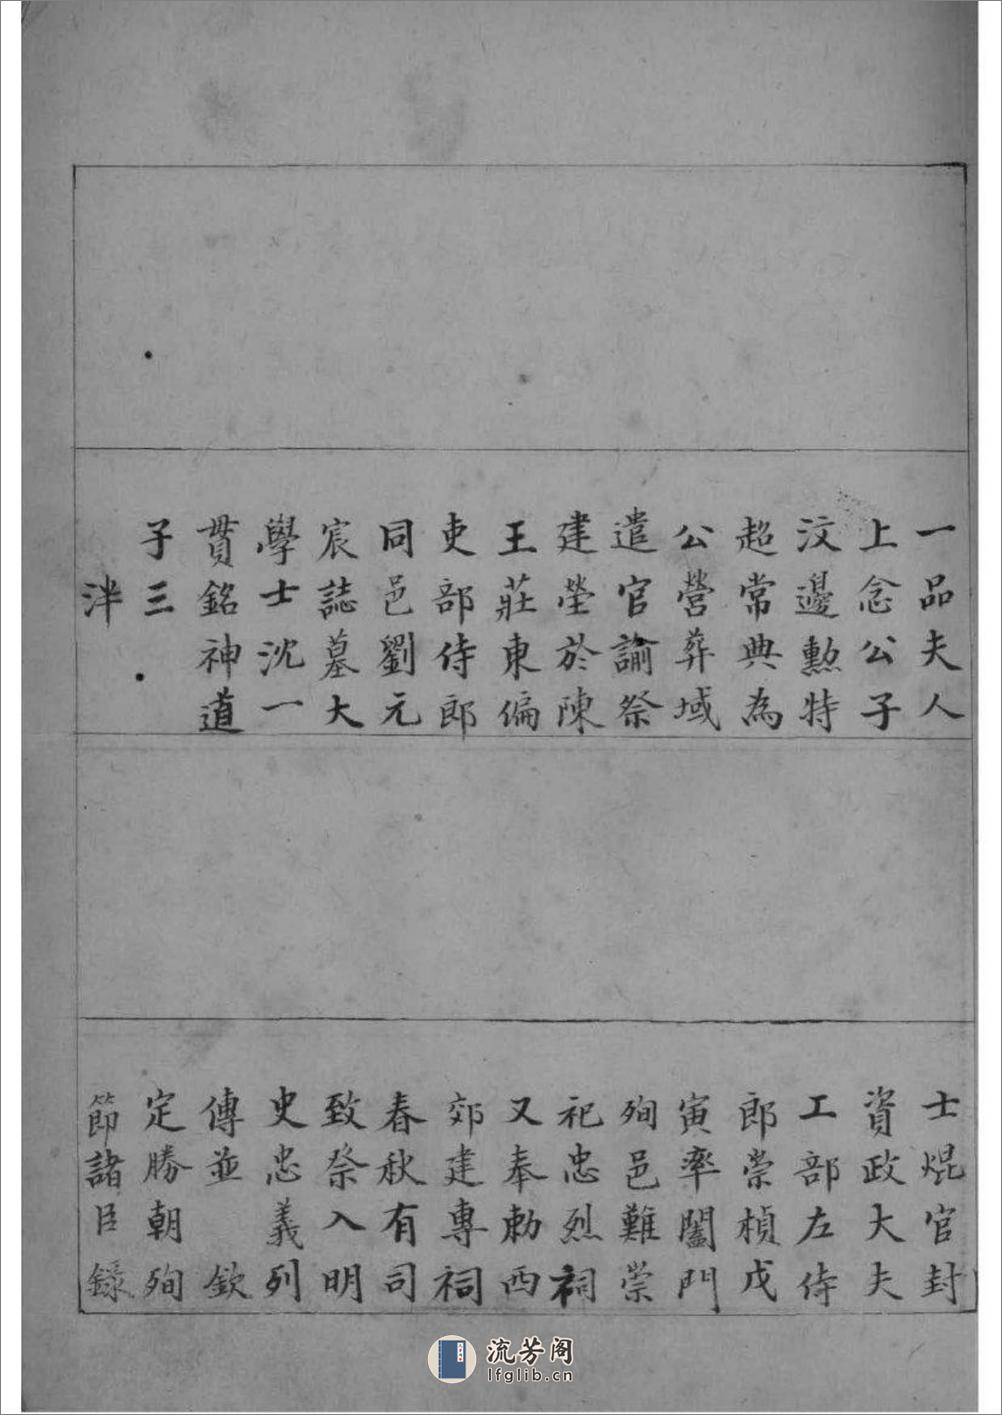 一品夫人
上念公子
汶邊勲特
超常典為
公營葬域
遣官諭祭
建塋於陳
王莊東偏
吏部侍郎
同邑劉元
宸誌墓大
學士沈一
貫銘神道
子三
泮
士焜官封
資政大夫
工部左侍
郎崇楨戊
寅率闔門
殉邑難崇
祀忠烈祠
又奉勅西
郊建專祠
春秋有司
致祭入明
史忠義列
傳並欽
定勝朝殉
節諸臣錄
流芳阁
lfglib.cn